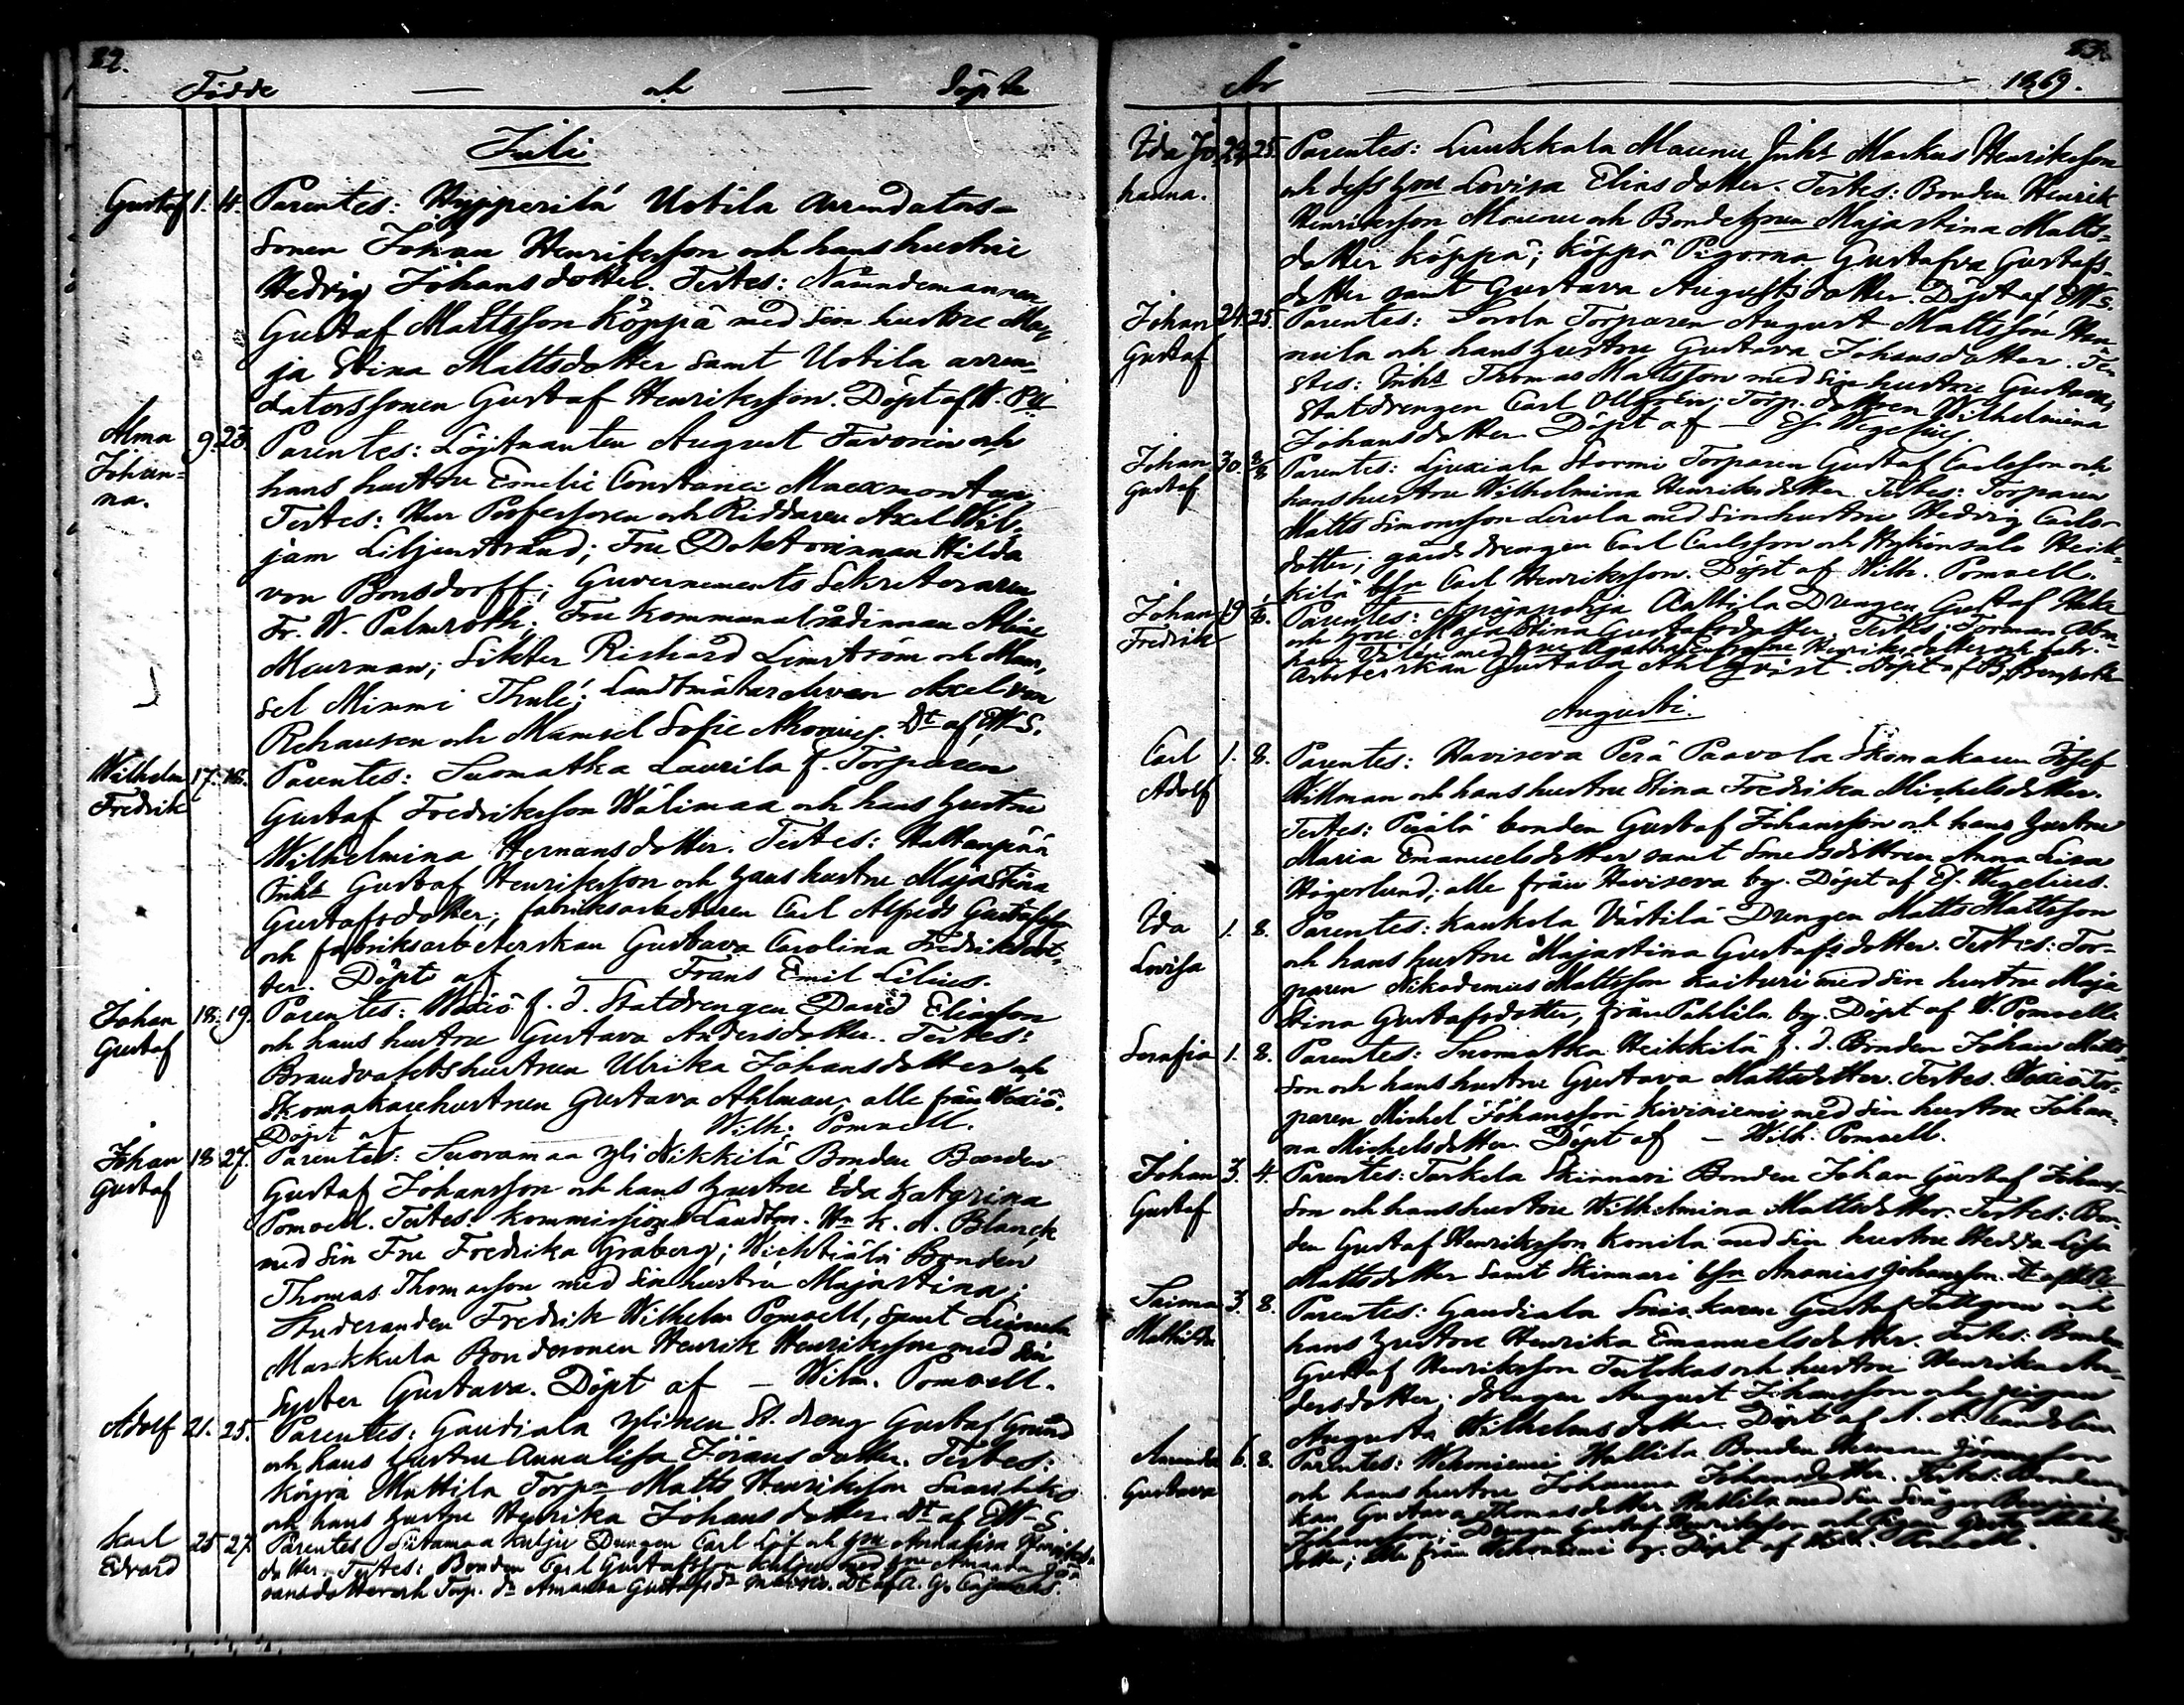 82.
Födde — och — döpte
Juli
Gustaf 1. 4. Parentes: Hypperilä Uotila Arrendators=
sonen Johan Henriksson och hans hustru
Hedvig Johansdotter. Testes: Nämndemannen
Gustaf Mattsson Köppä med sin hustru Ma=
ja Stina Mattsdotter samt Uotila arren=
datorssonen Gustaf Henriksson. Döpt af W. Pll
Alma Johan=na. 9. 23. Parentes: Löjtnanten August Favorin och
hans hustru Emelie Constance Maexmontan
Testes: Herr Professoren och Riddaren Axel Wil=
jam Liljenstrand; Fru Doktorinnan Hilda
von Bonsdorff; Guvernements Sekreteraren
Fr. W. Palmroth; Fru Kommunalrådinnan Aline
Meurman; Sikter Richard Lindström och Mam=
sel Mimmi Thulé; Landtmätareleven Axel von
Rehausen och Mamsel Sofie Dt af EW-S.
Wilhelm Fredrik 17. 18. Parentes: Suomatka Laurila f. Torparen
Gustaf Fredriksson Wälimaa och hans hustru
Wilhelmina Hermansdotter. Testes: Hattanpää
Inht Gustaf Henriksson och hans hustru Maja Stina
Gustafsdotter; fabriksarbetaren Carl Alfred Gustafsson
och fabriksarbeterskan Gustava Carolina Fredriksdot=
ter. Döpt af — Frans Emil Lilius.
Johan Gustaf 18. 19. Parentes: Wexiö f. d. Statdrengen David Eliasson
och hans hustru Gustava Andersdotter. Testes:
Brandvaktshustrun Ulrika Johansdotter och
Skomakarehustrun Gustava Ahlman; alla från Wexiö.
Döpt af Wilh. Pomoell.
Johan Gustaf 18 27. Parentes: Suoramaa Yli Nikkilä Bonden Bonden
Gustaf Johansson och hans hustru Eda Katarina
Pomoell. Testes: Kommissions Landtm. Hn K. A. Blanck
med sin Fru Fredrika Gråberg; Wichtiälä Bonden
Thomas Thomasson med sin hustru Majastina;
Studeranden Fredrik Wilhelm Pomoell, samt
Markkula Bondesonen Henrik Henriksson med sin
syster Gustava. Döpt af — Wilh. Pomoell.
Adolf 21. 25. Parentes: Gaudiala Ylinen St. dreng Gustaf Grund
och hans hustru Annalisa Göransdotter. Testes:
Köyrä Mattila Torpn Matts Henriksson
och hans hustru Henrika Johansdotter. Dt af EW-S
Karl Edvard 25 27. Parentes Siitamaa Kuljus Drengen Carl Löf och hne Annalisa Henriks=
dotter. Testes: Bonden Carl Gustafsson Kuljus med hne Amanda Jo=
hansdotter och Torp. dr Amanda Gustafsdr Dt af A. G.
År — 1869.
Ida Jo=hanna. 24. 25. Parentes: Luukkala Maunu Inht Markus Henriksson
och dess hne Lovisa Eliasdotter. Testes: Bonden Henrik
Henriksson Maunu och Bondehnen Majastina Matts=
dotter Köppä; Köppä Pigorna Gustafva Gustafs=
dotter samt Gustava Augustsdotter. Döpt af EW-S.
Johan Gustaf 24. 25. Parentes: Torparen August Mattsson
och hans hustru Gustava Johansdotter. Te=
stes: Inht Thomas Mattsson med sin hustru Gustava;
Statdrengen Carl Torp. dottren Wilhelmina
Johansdotter. Döpt af — Ef Wegelius.
Johan Gustaf 30. 8/8 Parentes: Liuxiala Stormi Torparen Gustaf Carlsson och
hans hustru Wilhelmina Henriksdotter. Testes: Torparen
Matts Simonsson Lerula med sin hustru Hedvig Carls=
dotter; gårdsdrengen Carl Carlsson och Heik=
kilä Carl Henriksson. Döpt af Wilh. Pomoell.
Johan Fredrik 19 Parentes: Drengen Gustaf
och hne Maja Stina Gustafsdotter. Testes: Forman Abra=
ham med hne
Arbeterskan Gustava Ahlqvist. Döpt af
Augusti.
Carl Adolf 1. 8. Parentes: Haviseva Perä Paavola Skomakaren Josef
Willman och hans hustru Stina Fredrika Michelsdotter.
Testes: Perälä bonden Gustaf Johansson och hans hustru
Maria Emanuelsdotter samt Smedsdottren Anna Lisa
Högerlund; alla från Haviseva by. Döpt af Ef. Wegelius.
Ida Lovisa 1. 8. Parentes: Kaukola Västilä Drengen Matts Mattsson
och hans hustru Majastina Gustafsdotter. Testes: Tor=
paren Nikodemus Mattsson Kaituri med sin hustru Maja
Stina Gustafsdotter, från Pahlila by. Döpt af W. Pomoell
Serafia 1. 8. Parentes: Suomatka Heikkilä f. d. Bonden Johan Matts=
son och hans hustru Gustava Mattsdotter. Testes. Wexiö Tor=
paren Michel Johansson Kiviniemi med sin hustru Johan=
na Michelsdotter. Döpt af — Wilh. Pomoell.
Johan Gustaf 3. 4. Parentes: Tarkela Skinnari Bonden Johan Gustaf Johans=
son och hans hustru Wilhelmina Mattsdotter. Testes: Bon=
den Gustaf Henriksson Konila med sin hustru Hedda Lisa
Mattsdotter samt Skinnari bsn Ananias Johansson. Dt af
Saima Mathilda 3. 8. Parentes: Gaudiala Gustaf och
hans hustru Henrika Emanuelsdotter. Testes: Bonden
Gustaf Henriksson och hustru Henrika An=
dersdotter; drengen August Johansson och pigan
Augusta Wilhelmsdotter. Döpt af A. A. Candolin
Amanda Gustava 6. 8. Parentes: Wehoniemi Hallila Bonden Herman
och hans hustru Johanna Johansdotter. Testes:
Gustava Thomasdotter Hallila med sin Svåger Benjamin
Johansson; Drengen Gustaf Henriksson och Pigan
dotter; alla från Wehoniemi by. Döpt af Wilh. Pomoell.